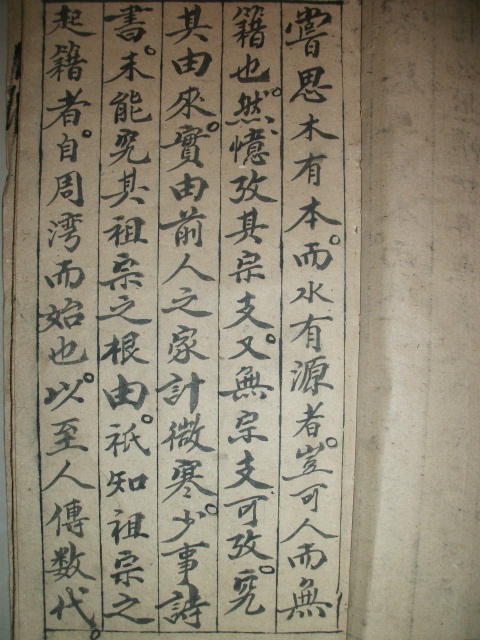 嘗思木有本。而水有源者。豈可人而無
籍也。然憶攷其宗支。又無宗支可攷。究
其由來。實由前人之家計微寒。少事詩
書。未能究其祖宗之根由。祇知祖宗之
起籍者。自周湾而始也。以至人傳数代。